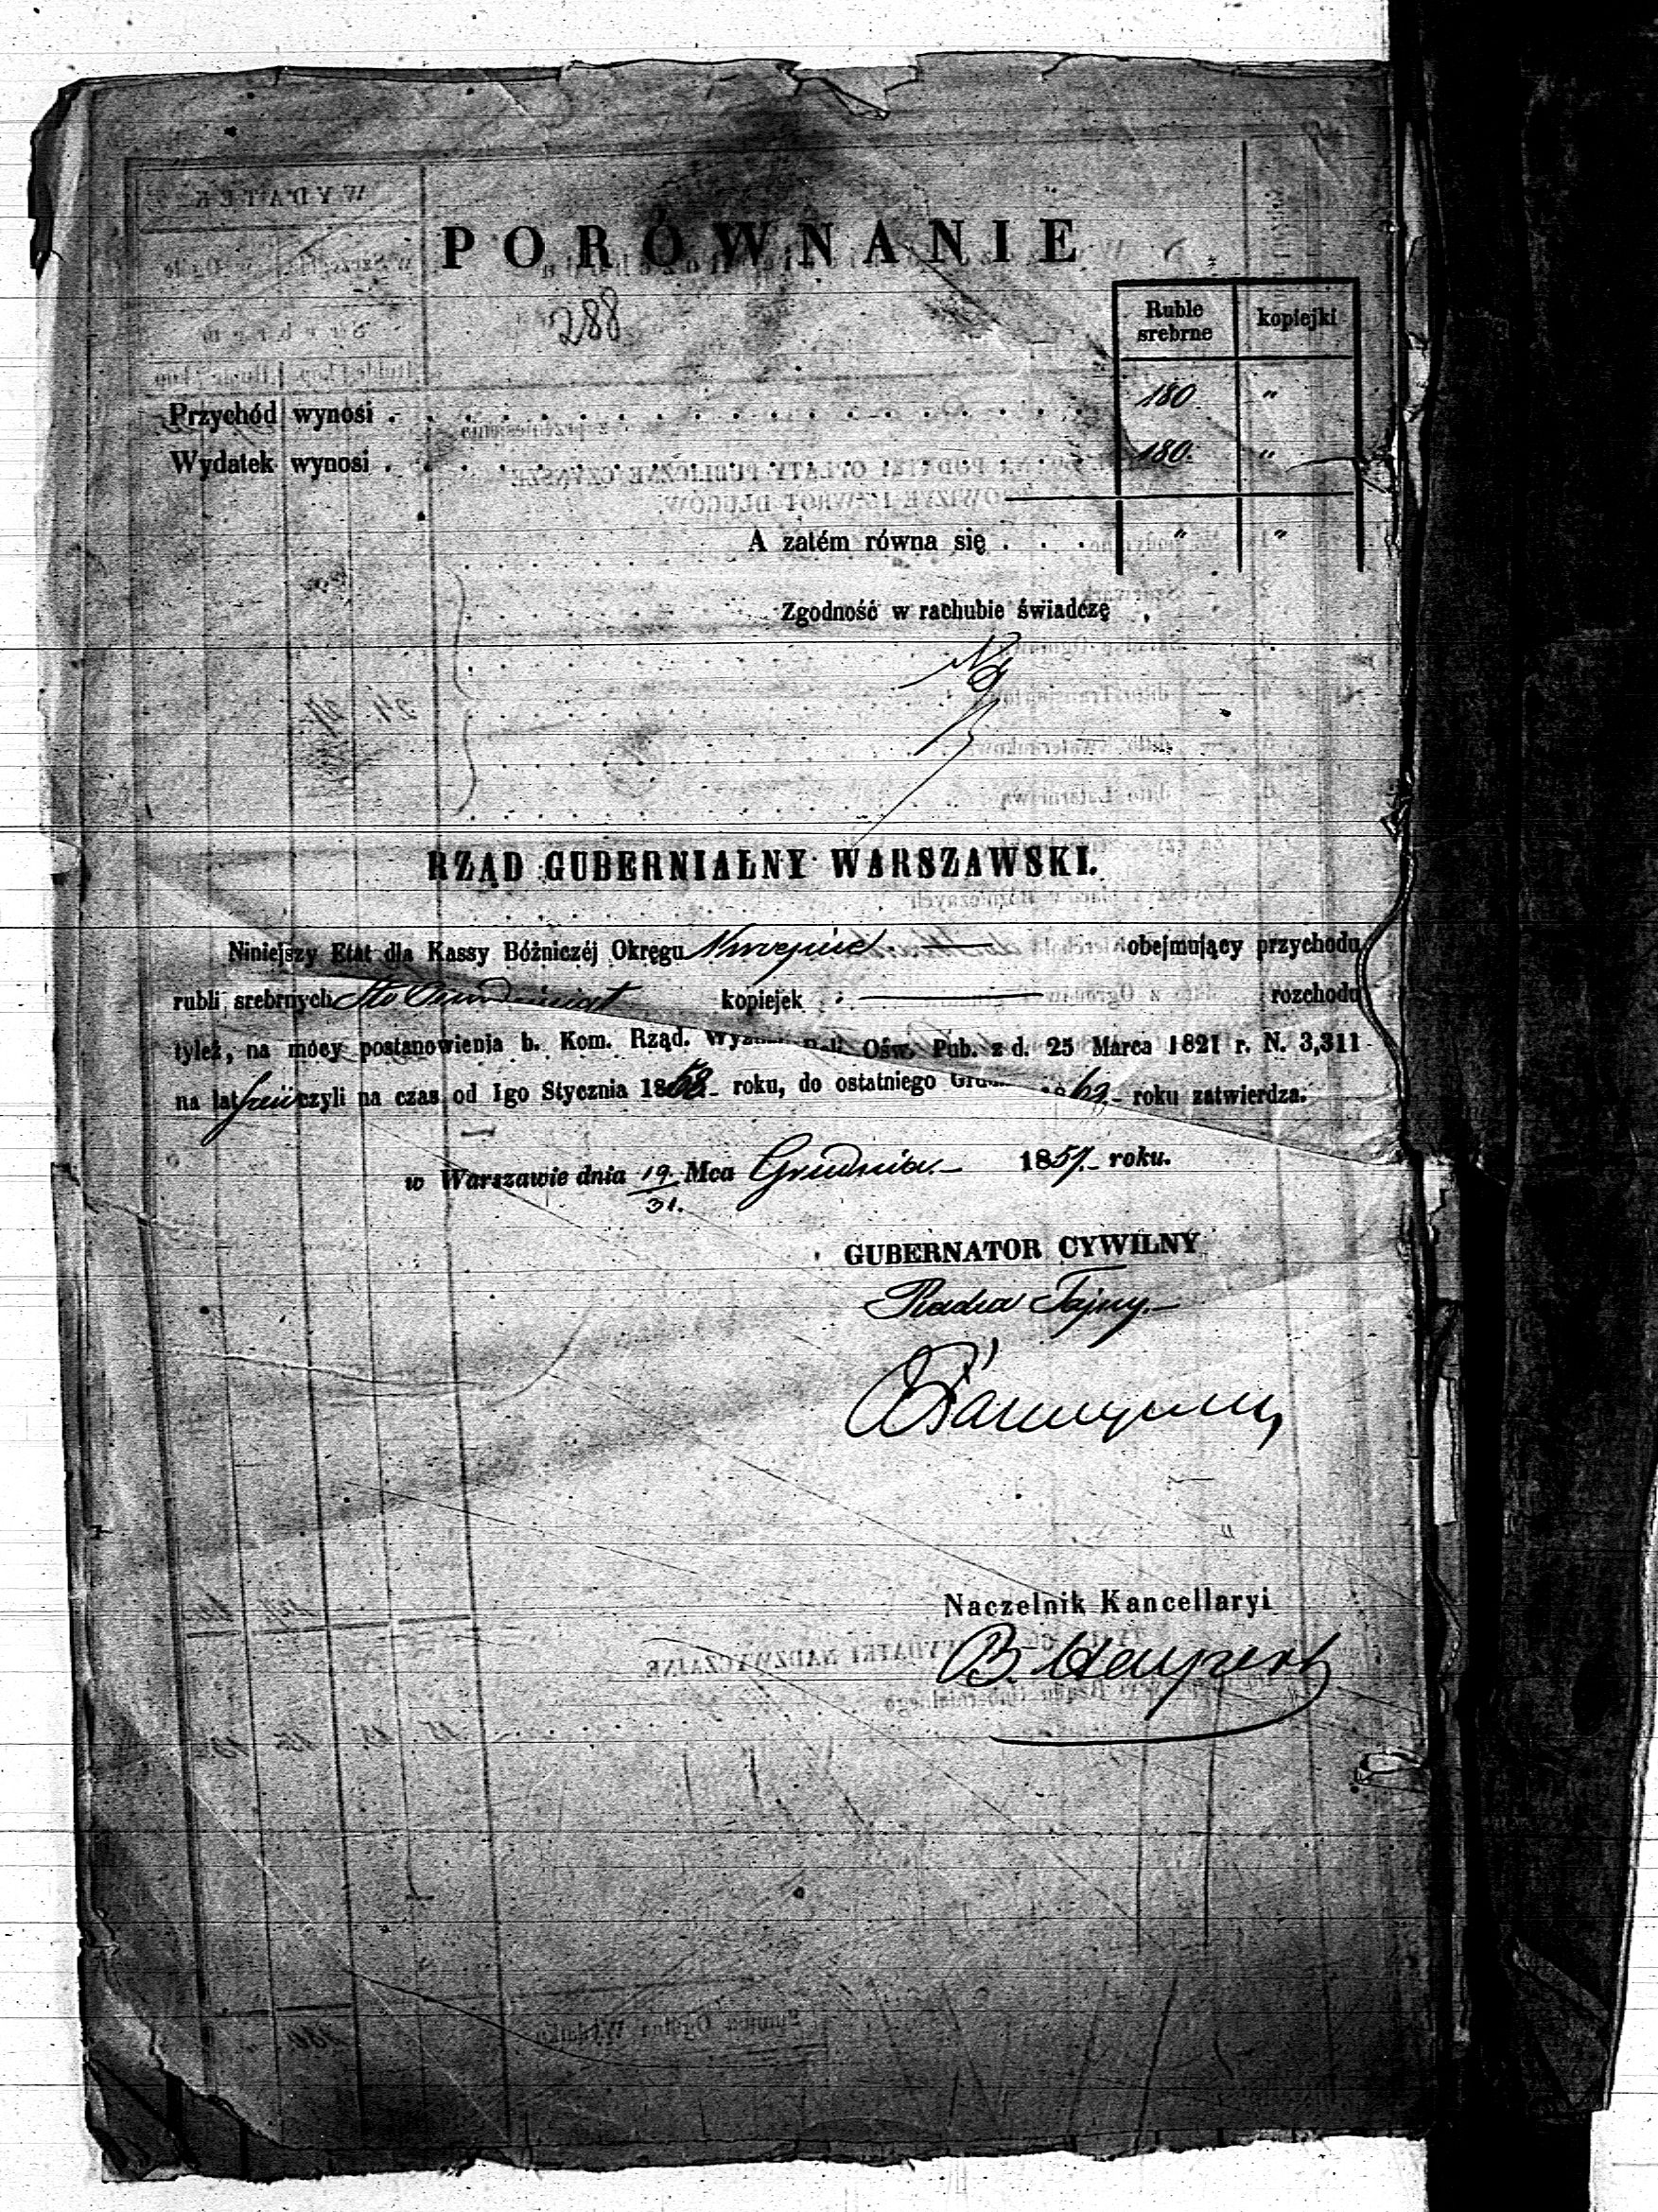 PORÓWNANIE
288
Ruble srebrne kopiejki
Przychód wynosi . . . 180 "
Wydatek wynosi . . . 180. "
A zatém równa się . . . " "
Zgodność w rachubie świadczę
RZĄD GUBERNIALNY WARSZAWSKI.
Niniejszy Etat dla Kassy Bóżniczéj Okręgu Krzepice obejmujący przychodu
rubli srebrnych Sto Osiemdziesiąt kopiejek rozchodu
tyleż, na mocy postanowienia b. Kom. Rząd. Ośw. Pub. z d. 25 Marca 1821 r. N. 3,311
na lat czyli na czas od 1go Stycznia 1858 roku, do ostatniego roku zatwierdza.
w Warszawie dnia 19/31. Mca Grudnia 1857 roku.
GUBERNATOR CYWILNY
Radca Tajny
Naczelnik Kancellaryi